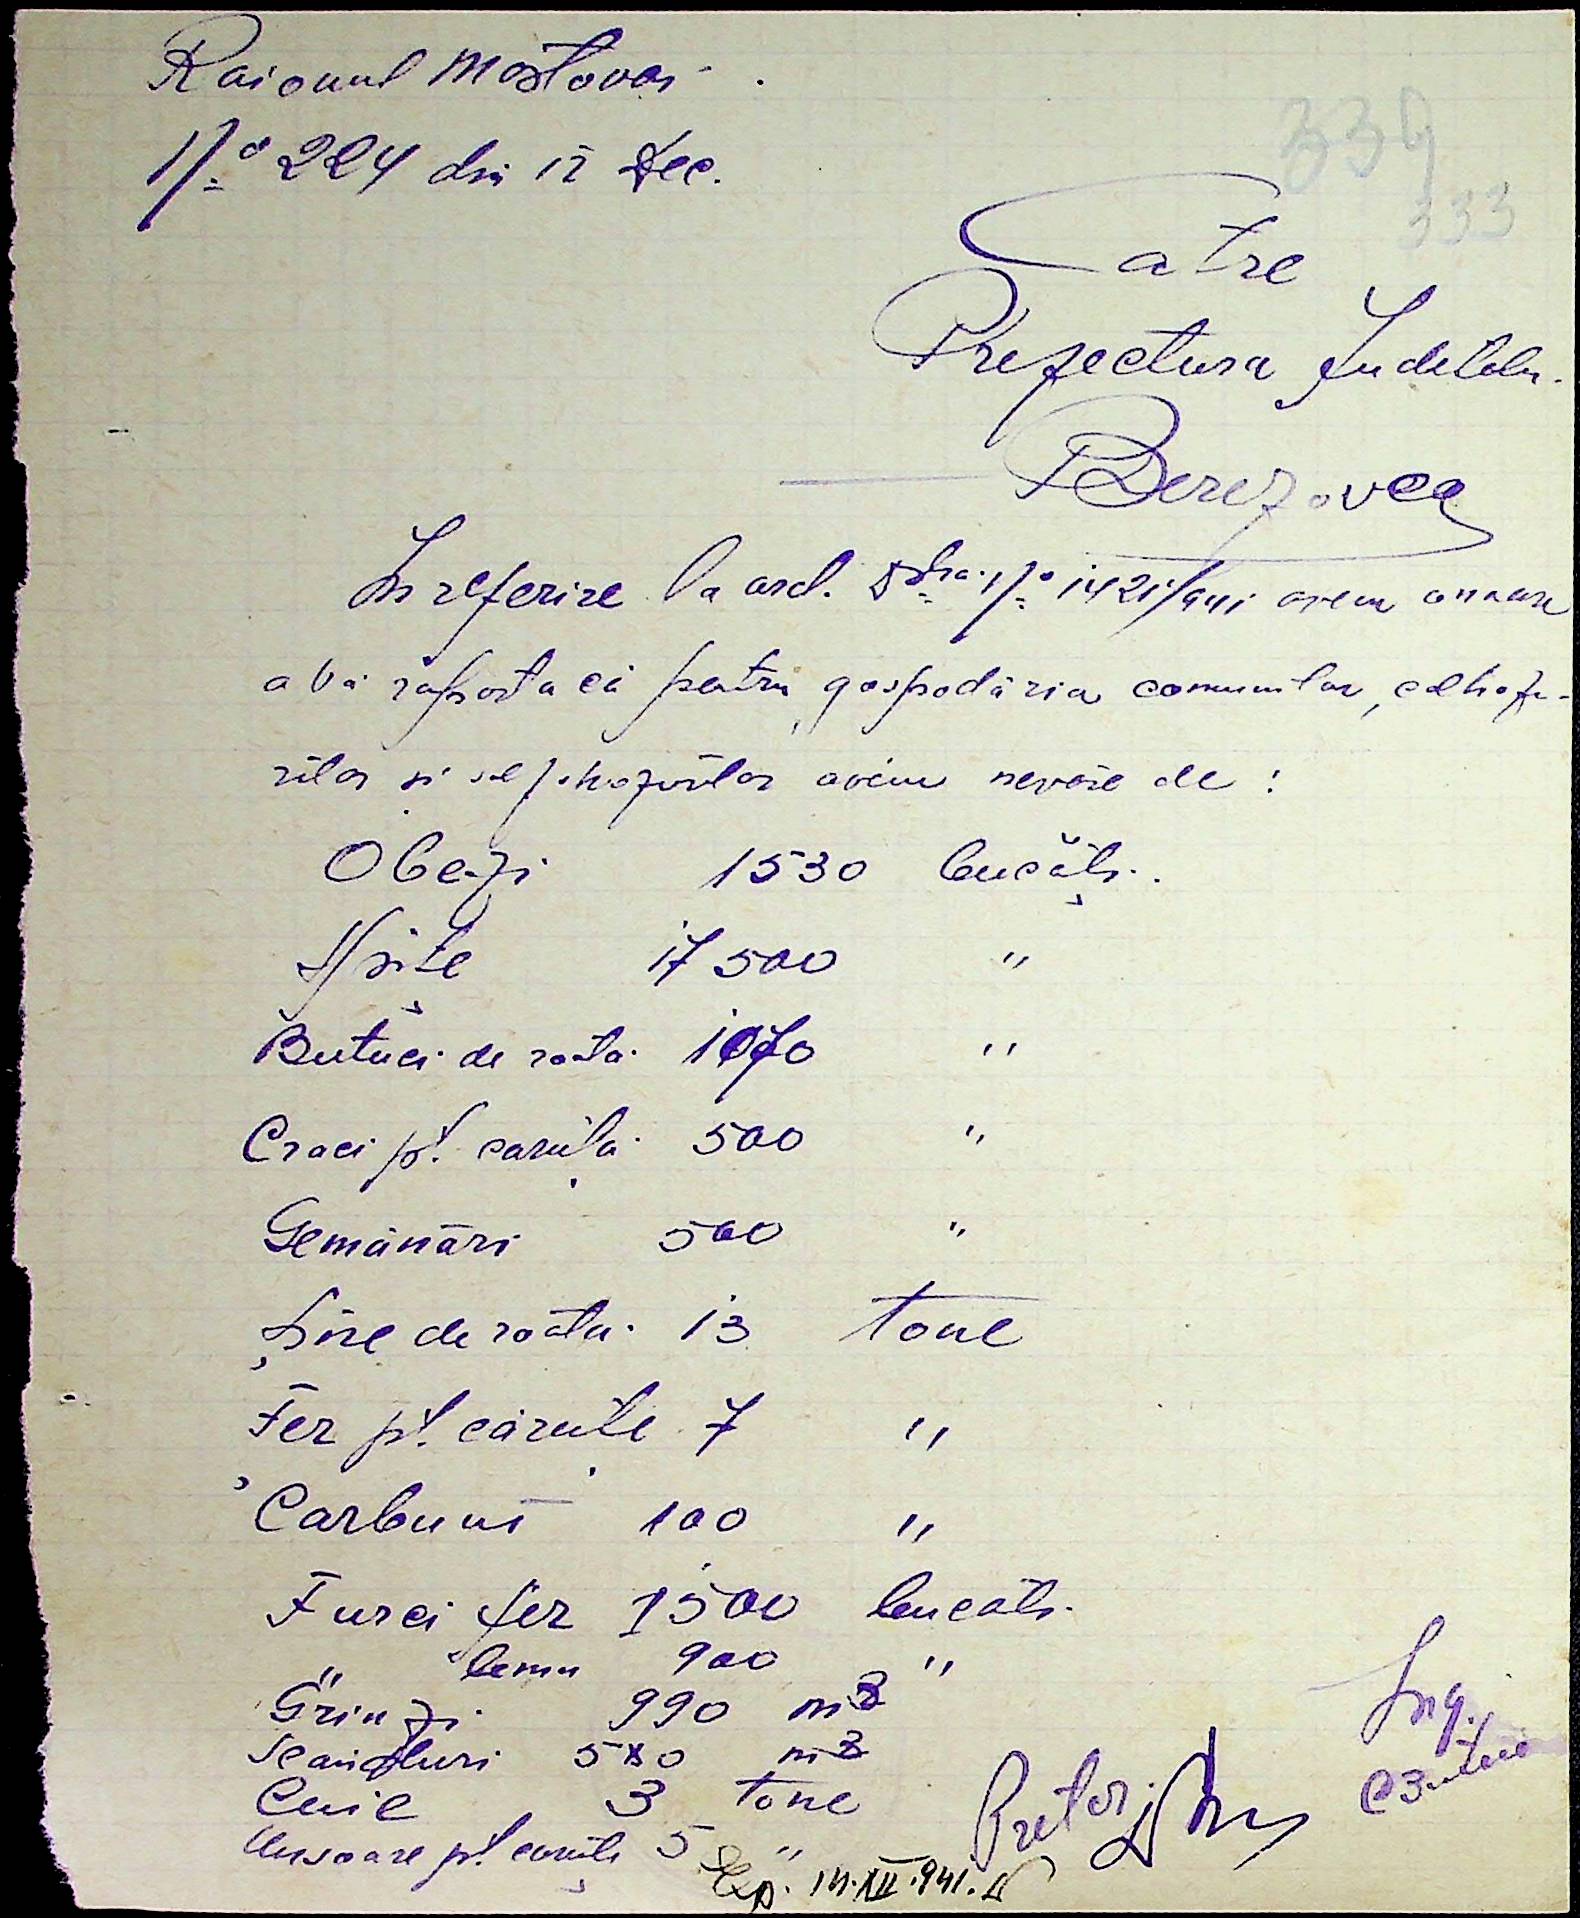 Raionul Mostovoi
No 224 din 12 Dec.
339
333
Catre
Prefectura Judetului
Berezovca
In referire la ord. Dstra. No 1421/941 avem onoare
a vă raporta că pentru gospodăria comunilor, colhozu-
rilor și sefhozurilor avem nevoie de :
Obezi 1530 bucăți.
Spițe 17500 "
Butuci de roată 1070 "
Craci pt. căruță 500 "
Gemănări 500 "
Șine de roată 13 tone
Fer pt. căruțe 7 "
Carbuni 100 "
Furci fer 1500 bucăți.
" lemn 900 "
Grinzi 990 m3
Scanduri 580 m3
Cuie 3 tone
Unsoare pt. căruțe 5 "
Ing.
Pretor
Exp. 14.XII.941.